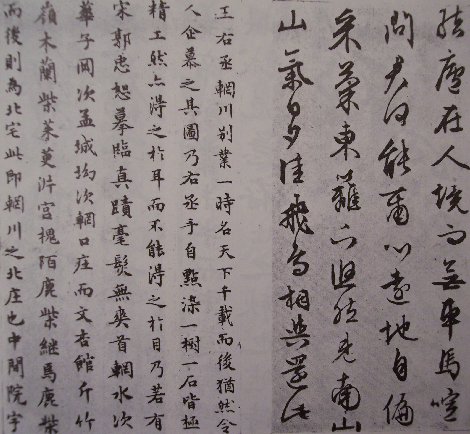 結廬在人境而無車馬喧
問君何能爾心遠地自偏
采菊東籬下悠然見南山
山氣日夕佳飛鳥相與還此
王右丞輞川別業一時名天下千載而後猶然令
人企慕之其圖乃右丞手自點染一樹一石皆極
精工然亦得之於耳而不能得之於目乃若有
宋郭忠恕摹臨真蹟毫髮無爽首輞水次
華子岡次孟城坳次輞口庄而文杏館斤竹
嶺木蘭柴茱萸沜宮槐陌鹿柴繼焉鹿柴
而後則為北宅此即輞川之北庄也中間院宇